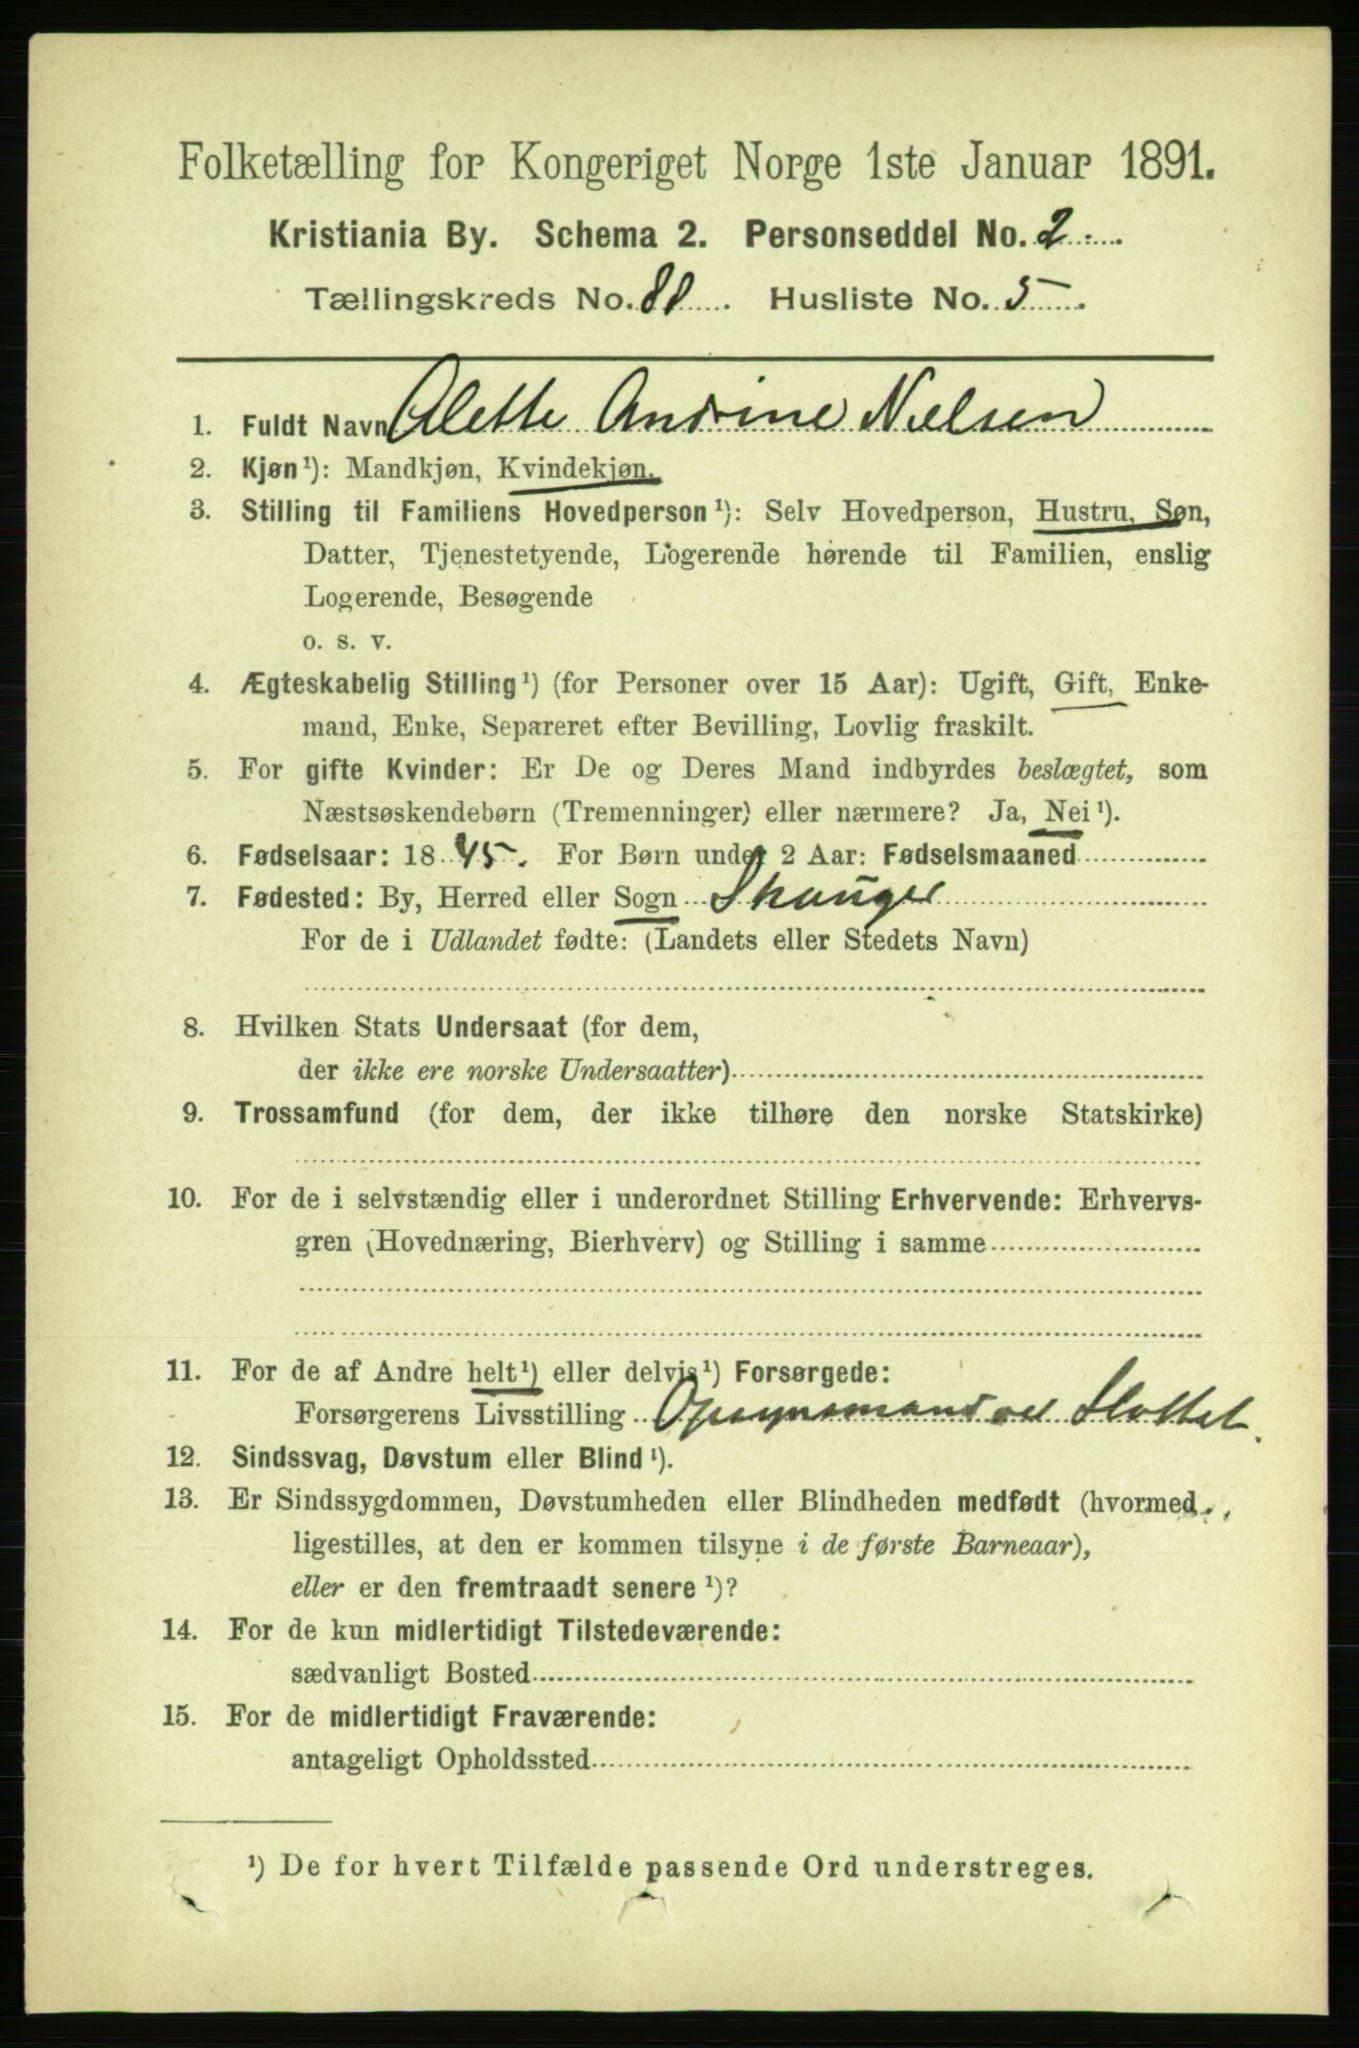 Folketælling for Kongeriget Norge 1ste Januar 1891.
Kristiania By. Schema 2. Personseddel No. 2
Tællingskreds No. 88. Husliste No. 5.
1. Fuldt Navn Alette Andrine Nielsen
2. Kjøn¹): Mandkjøn, Kvindekjøn.
3. Stilling til Familiens Hovedperson¹): Selv Hovedperson, Hustru, Søn,
Datter, Tjenestetyende, Logerende hørende til Familien, enslig
Logerende, Besøgende
o. s. v.
4. Ægteskabelig Stilling¹) (for Personer over 15 Aar): Ugift, Gift, Enke-
mand, Enke, Separeret efter Bevilling, Lovlig fraskilt.
5. For gifte Kvinder: Er De og Deres Mand indbyrdes beslægtet, som
Næstsøskendebørn (Tremenninger) eller nærmere? Ja, Nei¹).
6. Fødselsaar: 1845. For Børn under 2 Aar: Fødselsmaaned
7. Fødested: By, Herred eller Sogn Skauger
For de i Udlandet fødte: (Landets eller Stedets Navn)
8. Hvilken Stats Undersaat (for dem,
der ikke ere norske Undersaatter)
9. Trossamfund (for dem, der ikke tilhøre den norske Statskirke)
10. For de i selvstændig eller i underordnet Stilling Erhvervende: Erhvervs-
gren (Hovednæring, Bierhverv) og Stilling i samme
11. For de af Andre helt¹) eller delvis¹) Forsørgede:
Forsørgerens Livsstilling Opsynsmand ved Slottet.
12. Sindssvag, Døvstum eller Blind¹).
13. Er Sindssygdommen, Døvstumheden eller Blindheden medfødt (hvormed
ligestilles, at den er kommen tilsyne i de første Barneaar),
eller er den fremtraadt senere¹)?
14. For de kun midlertidigt Tilstedeværende:
sædvanligt Bosted
15. For de midlertidigt Fraværende:
antageligt Opholdssted
¹) De for hvert Tilfælde passende Ord understreges.